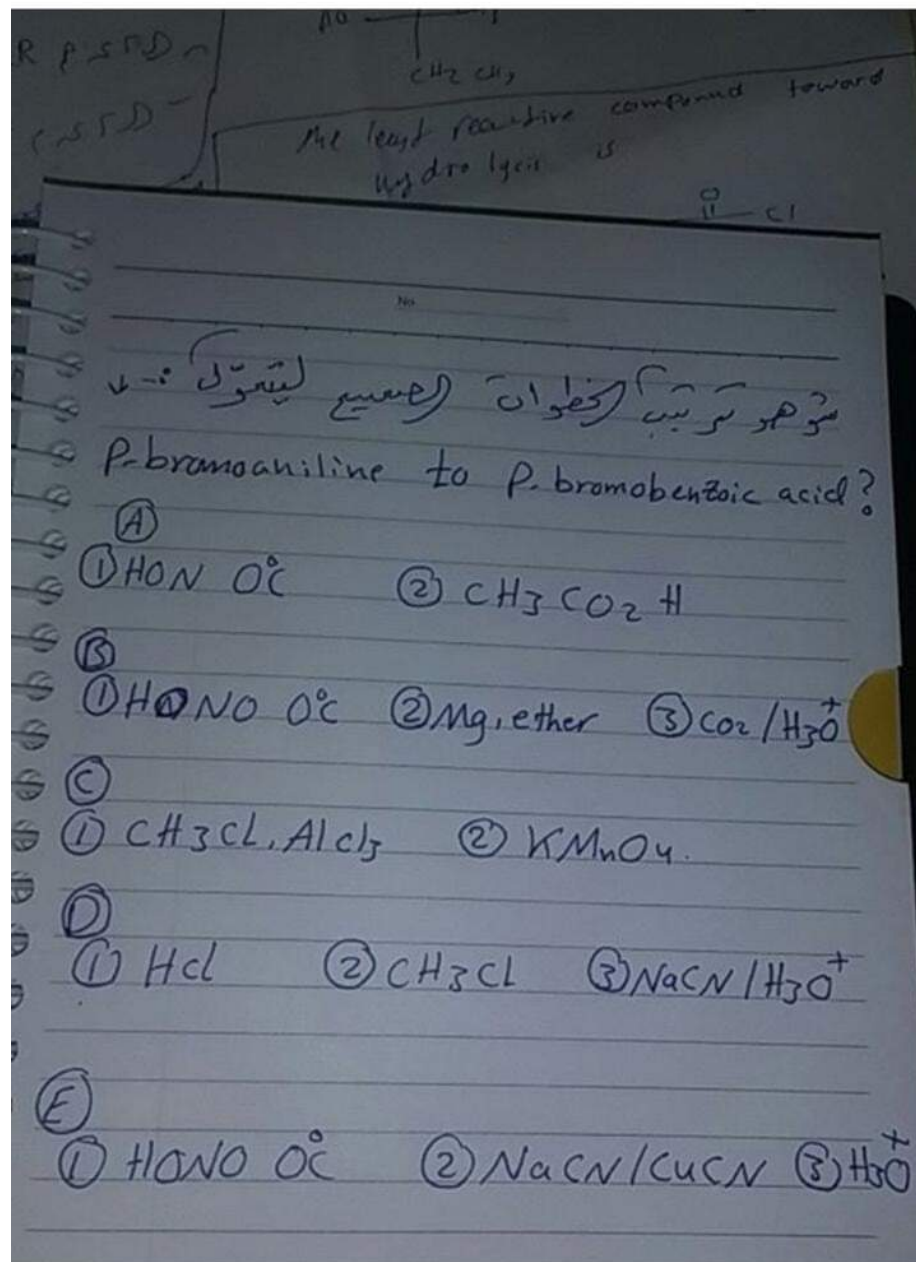 CH2 CH3
the least reactive compound toward
Hydrolysis is
O
Cl
No.
ترتيب الخطوات الصحيح ليتحول :-
P-bromoaniline to P. bromobenzoic acid?
A
① HON 0°C ② CH3CO2H
B
① HONO 0°C ② Mg, ether ③ CO2 / H3O+
C
① CH3Cl, AlCl3 ② KMnO4.
D
① HCl ② CH3Cl ③ NaCN / H3O+
E
① HONO 0°C ② NaCN / CuCN ③ H3O+